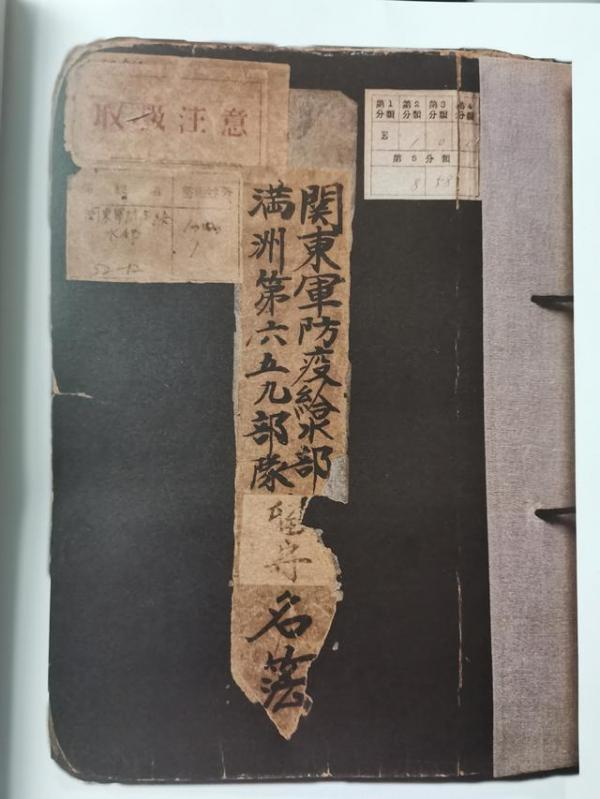 取扱注意
第1分類 第2分類 第3分類 第4
E 1 0
第5分類
関東軍防疫給水部
満洲第六五九部隊
留守
名簿